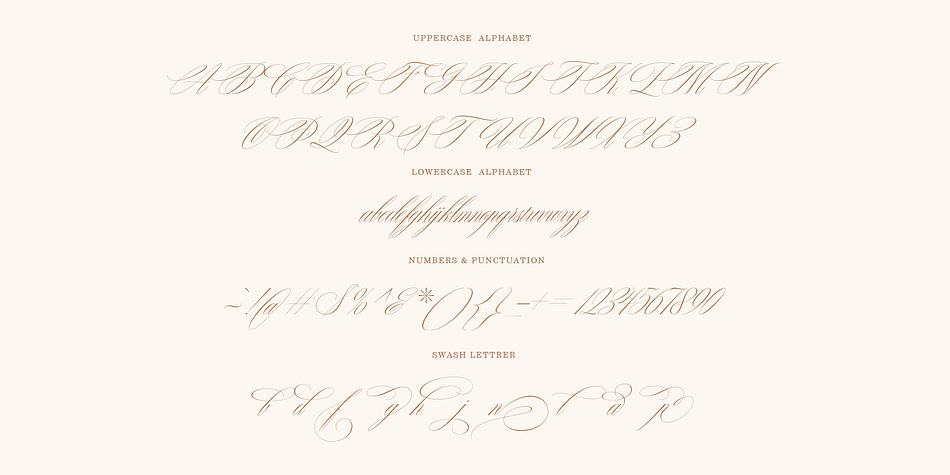 UPPERCASE ALPHABET
A B C D E F G H I J K L M N
O P Q R S T U V W X Y Z
LOWERCASE ALPHABET
abcdefghijklmnopqrstuvwxyz
NUMBERS & PUNCTUATION
~`!@#$%^&*(){}_-+=1234567890
SWASH LETTRER
b d f g h j n